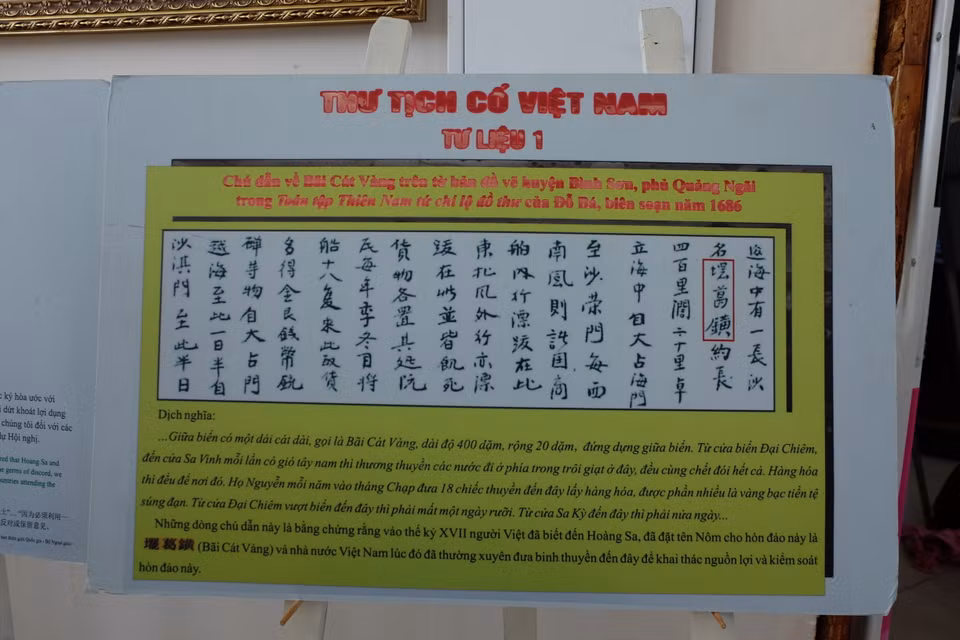 THƯ TỊCH CỔ VIỆT NAM
TƯ LIỆU 1
Chú dẫn về Bãi Cát Vàng trên tờ bản đồ vẽ huyện Bình Sơn, phủ Quảng Ngãi
trong Toản tập Thiên Nam tứ chí lộ đồ thư của Đỗ Bá, biên soạn năm 1686
海中有一長沙
名葛鐄約長
四百里濶二十里卓
立海中自大占海門
至沙荣門每西
南風則諸国商
舶内行漂跋在此
東北風外行亦漂
跋在此並皆飢死
貨物各置其処阮
氏每年季冬月将
船十八隻來此取貨
多得金艮錢幣銃
等物自大占門
越海至此一日半自
沙淇門至此半日
Dịch nghĩa:
...Giữa biển có một dải cát dài, gọi là Bãi Cát Vàng, dài độ 400 dặm, rộng 20 dặm, đứng dựng giữa biển. Từ cửa biển Đại Chiêm,
đến cửa Sa Vinh mỗi lần có gió tây nam thì thương thuyền các nước đi ở phía trong trôi giạt ở đây, đều cùng chết đói hết cả. Hàng hóa
thì đều để nơi đó. Họ Nguyễn mỗi năm vào tháng Chạp đưa 18 chiếc thuyền đến đây lấy hàng hóa, được phần nhiều là vàng bạc tiền tệ
súng đạn. Từ cửa Đại Chiêm vượt biển đến đây thì phải mất một ngày rưỡi. Từ cửa Sa Kỳ đến đây thì phải nửa ngày...
Những dòng chú dẫn này là bằng chứng rằng vào thế kỷ XVII người Việt đã biết đến Hoàng Sa, đã đặt tên Nôm cho hòn đảo này là
葛鐄 (Bãi Cát Vàng) và nhà nước Việt Nam lúc đó đã thường xuyên đưa binh thuyền đến đây để khai thác nguồn lợi và kiểm soát
hòn đảo này.
ký hòa ước với
dứt khoát lợi dụng
chúng tôi đối với các
dự Hội nghị.
that Hoang Sa and
germs of discord, we
attending the